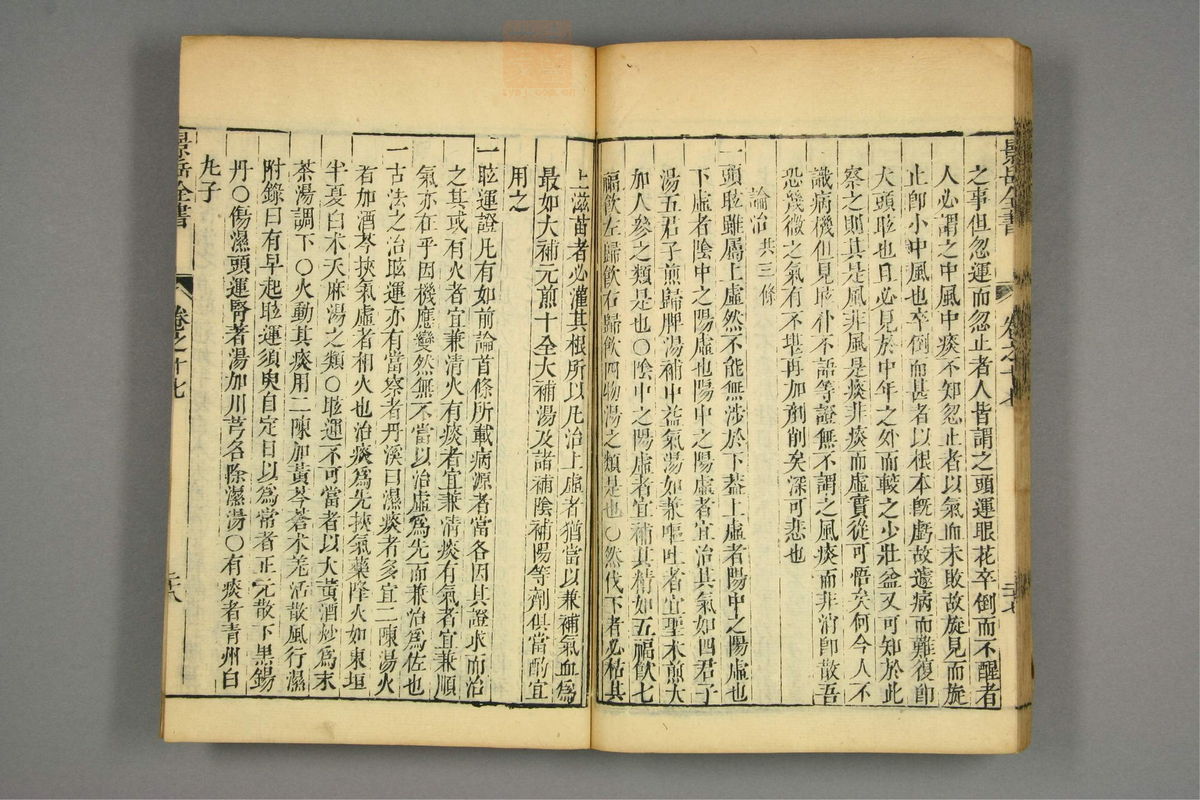 景岳全書
卷之十七
三十七
之事但忽運而忽止者人皆謂之頭運眼花卒倒而不醒者
人必謂之中風中痰不知忽止者以氣血未敗故旋見而旋
止卽小中風也卒倒而甚者以根本旣虧故遽病而難復卽
大頭眩也且必見於中年之外而較之少壯益又可知於此
察之則其是風非風是痰非痰而虛實從可悟矣何今人不
識病機但見眩仆不語等證無不謂之風痰而非消卽散吾
恐幾微之氣有不堪再加剷削矣深可悲也
論治 共三條
一頭眩雖屬上虛然不能無涉於下葢上虛者陽中之陽虛也
下虛者陰中之陽虛也陽中之陽虛者宜治其氣如四君子
湯五君子煎歸脾湯補中益氣湯如兼嘔吐者宜聖术煎大
加人參之類是也○陰中之陽虛者宜補其精如五福飲七
福飲左歸飲右歸飲四物湯之類是也○然伐下者必枯其
上滋苗者必灌其根所以凡治上虛者猶當以兼補氣血爲
最如大補元煎十全大補湯及諸補陰補陽等劑俱當酌宜
用之
一眩運證凡有如前論首條所載病源者當各因其證求而治
之其或有火者宜兼清火有痰者宜兼清痰有氣者宜兼順
氣亦在乎因機應變然無不當以治虛爲先而兼治爲佐也
一古法之治眩運亦有當察者丹溪曰濕痰者多宜二陳湯火
者加酒芩挾氣虛者相火也治痰爲先挾氣藥降火如東垣
半夏白术天麻湯之類○眩運不可當者以大黃酒炒爲末
茶湯調下○火動其痰用二陳加黃芩蒼术羌活散風行濕
附錄曰有早起眩運須臾自定日以爲常者正元散下黑錫
丹○傷濕頭運腎著湯加川芎名除濕湯○有痰者青州白
丸子
景岳全書
卷之十七
三十八